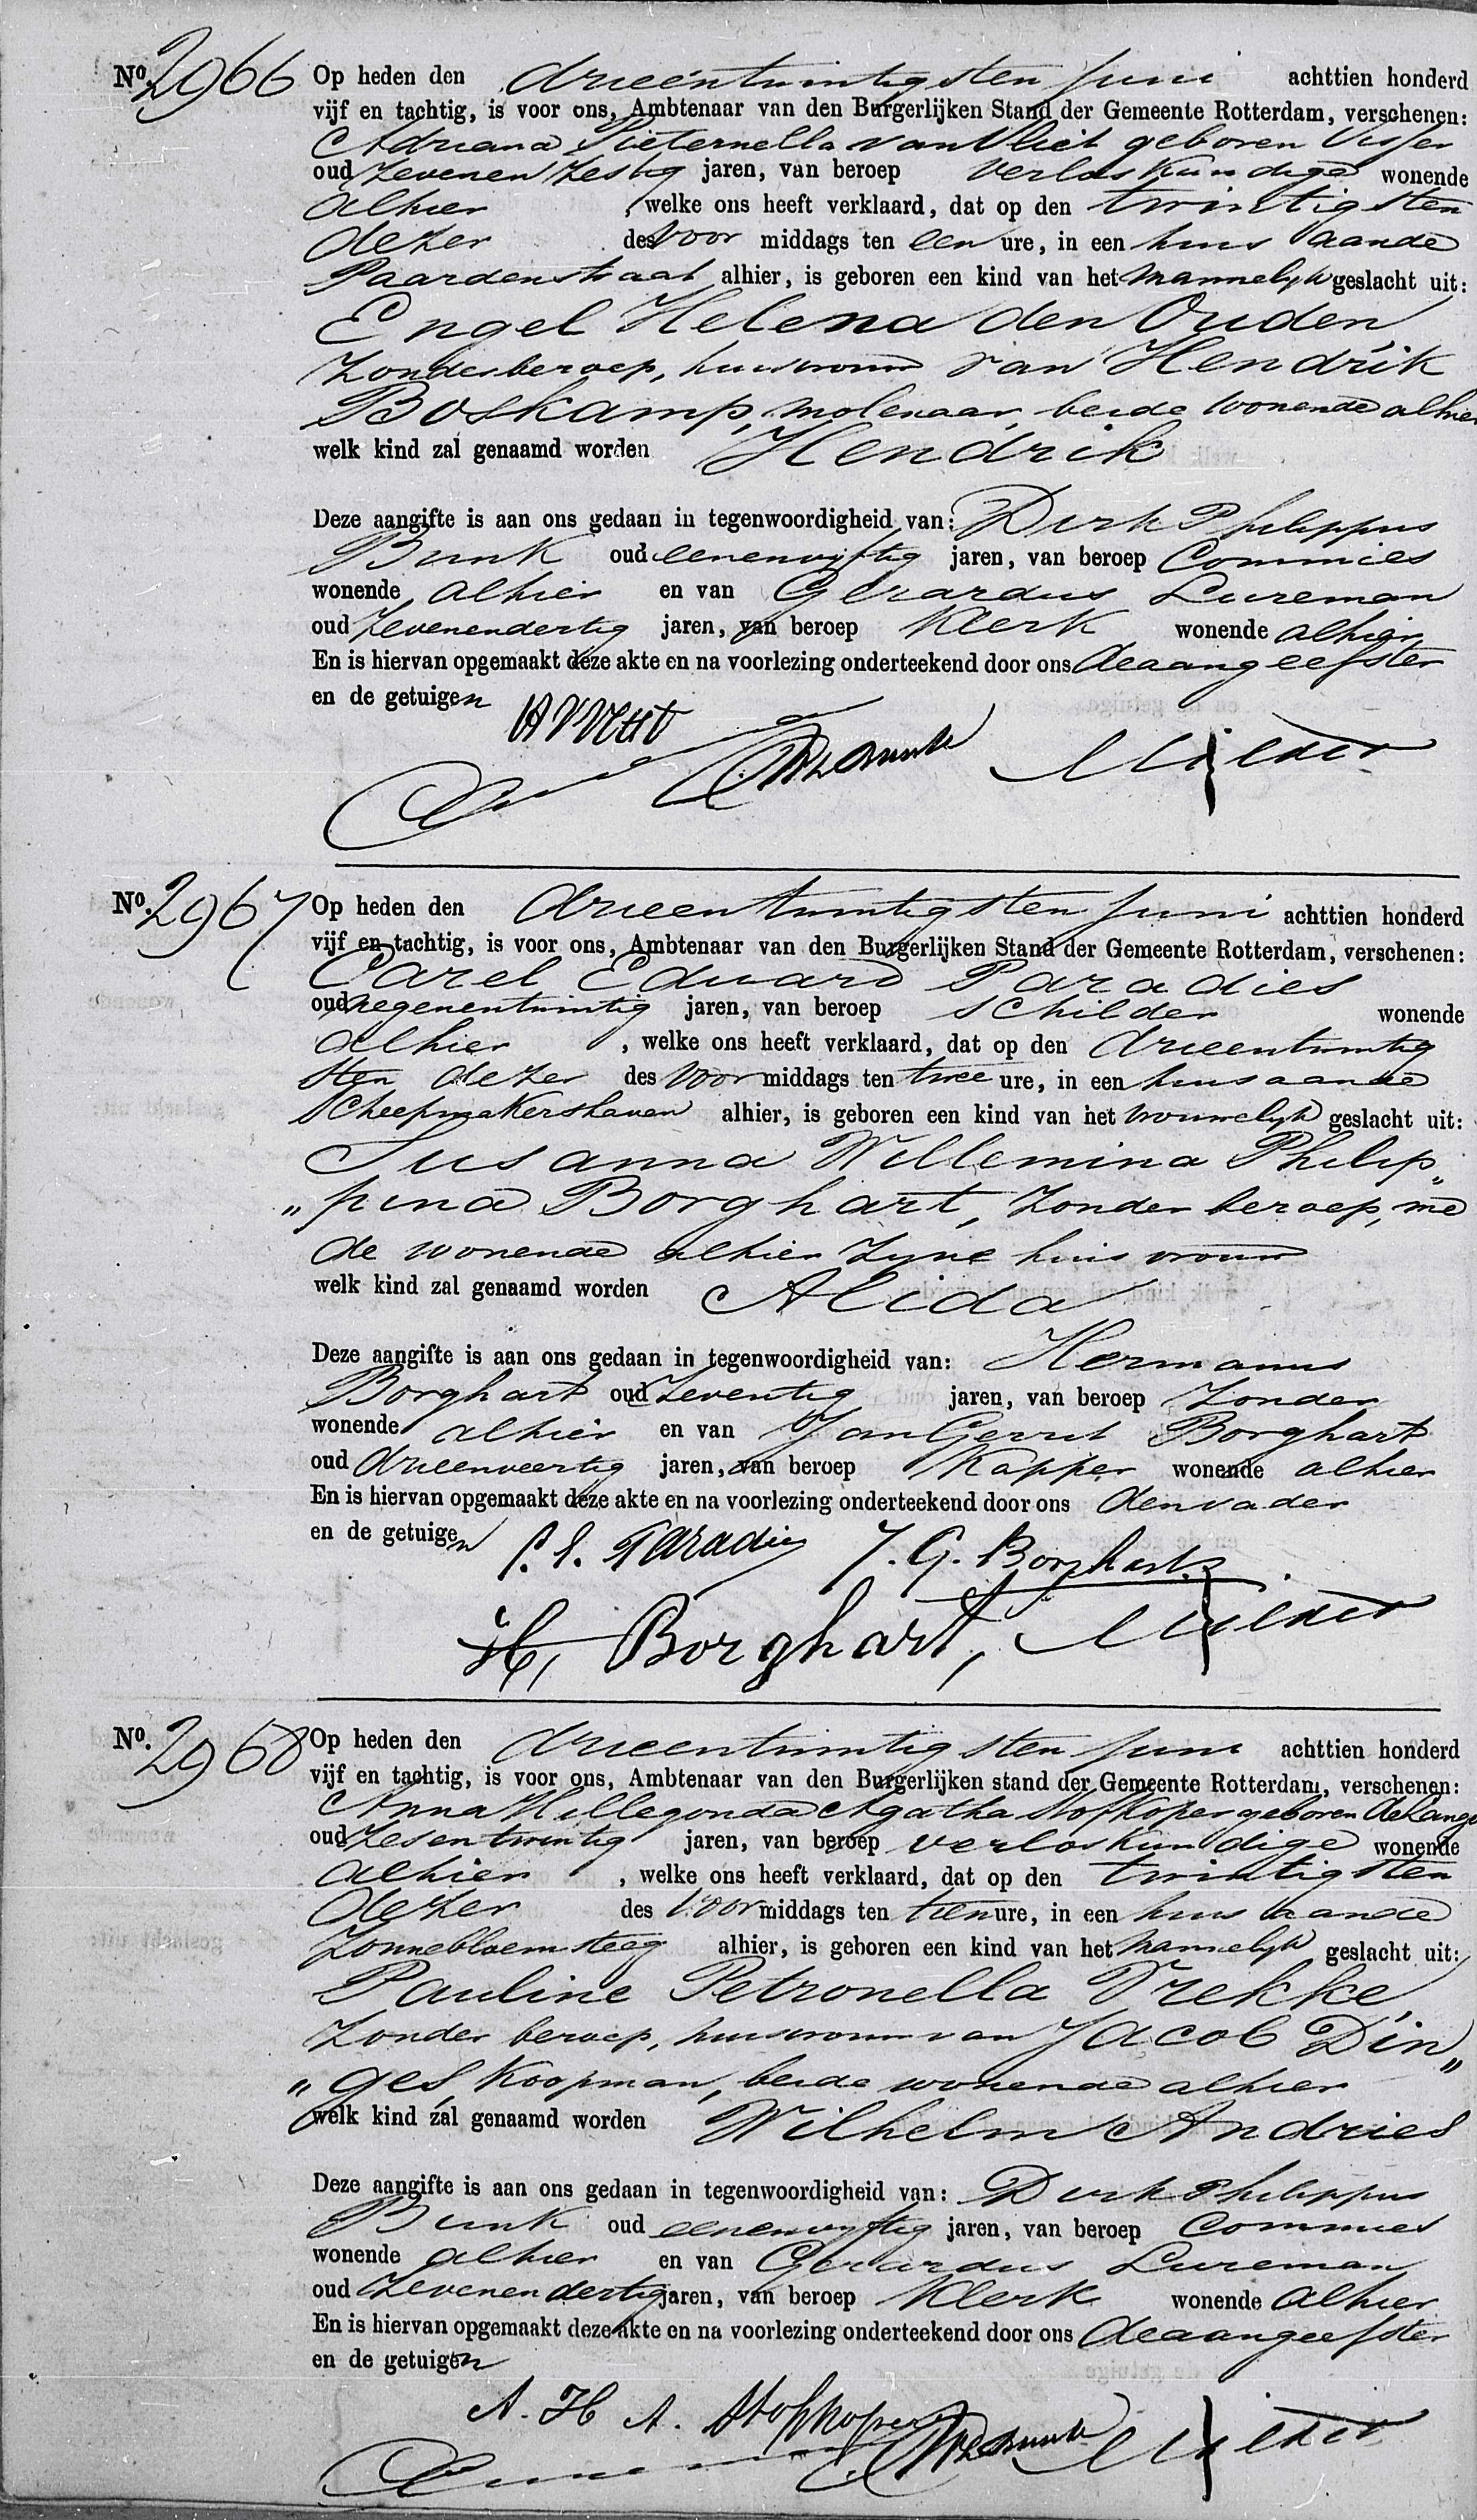 No. 2966 Op heden den drieëntwintigsten Juni achttien honderd
vijf en tachtig, is voor ons, Ambtenaar van den Burgerlijken Stand der Gemeente Rotterdam, verschenen:
Adriana Pieternella van Vliet geboren Visser
oud zevenenzestig jaren, van beroep verloskundige wonende
alhier , welke ons heeft verklaard, dat op den twintigsten
dezer des voor middags ten een ure, in een huis aande
Paardenstraat alhier, is geboren een kind van het mannelyk geslacht uit:
Engel Helena den Ouden
zonder beroep, huisvrouw van Hendrik
Boskamp, molenaar, beide wonende alhier
welk kind zal genaamd worden Hendrik
Deze aangifte is aan ons gedaan in tegenwoordigheid van: Dirk Philippus
Bunk oud eenenvyftig jaren, van beroep Commies
wonende alhier en van Gerardus Lureman
oud zevenendertig jaren, van beroep Klerk wonende alhier
En is hiervan opgemaakt deze akte en na voorlezing onderteekend door ons de aangeefster
en de getuigen
No. 2967 Op heden den drieentwintigsten Juni achttien honderd
vijf en tachtig, is voor ons, Ambtenaar van den Burgerlijken Stand der Gemeente Rotterdam, verschenen:
Carel Eduard Paradies
oud negenentwintig jaren, van beroep schilder wonende
alhier , welke ons heeft verklaard, dat op den drieentwintig
sten dezer des voor middags ten twee ure, in een huis aande
Scheepmakershaven alhier, is geboren een kind van het vrouwelyk geslacht uit:
Susanna Willemina Philip„
„pina Borghart, zonder beroep, me
de wonende alhier zyne huisvrouw
welk kind zal genaamd worden Alida
Deze aangifte is aan ons gedaan in tegenwoordigheid van: Hermanus
Borghart oud zeventig jaren, van beroep zonder
wonende alhier en van Jan Gerrit Borghart
oud drieenveertig jaren, van beroep Kapper wonende alhier
En is hiervan opgemaakt deze akte en na voorlezing onderteekend door ons den vader
en de getuigen C. E. Paradies J. G. Borghart
H, Borghart, Mulder
No. 2968 Op heden den drieentwintigsten Juni achttien honderd
vijf en tachtig, is voor ons, Ambtenaar van den Burgerlijken stand der Gemeente Rotterdam, verschenen:
Anna Hillegonda Agatha Stofkoper geboren de Lange
oud zesentwintig jaren, van beroep verloskundige wonende
alhier , welke ons heeft verklaard, dat op den twintigsten
dezer des voor middags ten tien ure, in een huis aande
Zonnebloemsteeg alhier, is geboren een kind van het mannelyk geslacht uit:
Pauline Petronella Trekke,
zonder beroep, huisvrouw van Jacob Din„
„ges, Koopman, beide wonende alhier
welk kind zal genaamd worden Wilhelm Andries
Deze aangifte is aan ons gedaan in tegenwoordigheid van: Dirk Philippus
Bunk oud eenenvyftig jaren, van beroep Commies
wonende alhier en van Gerardus Lureman
oud zevenendertig jaren, van beroep Klerk wonende alhier
En is hiervan opgemaakt deze akte en na voorlezing onderteekend door ons de aangeefster
en de getuigen
A. H A. Stofkoper